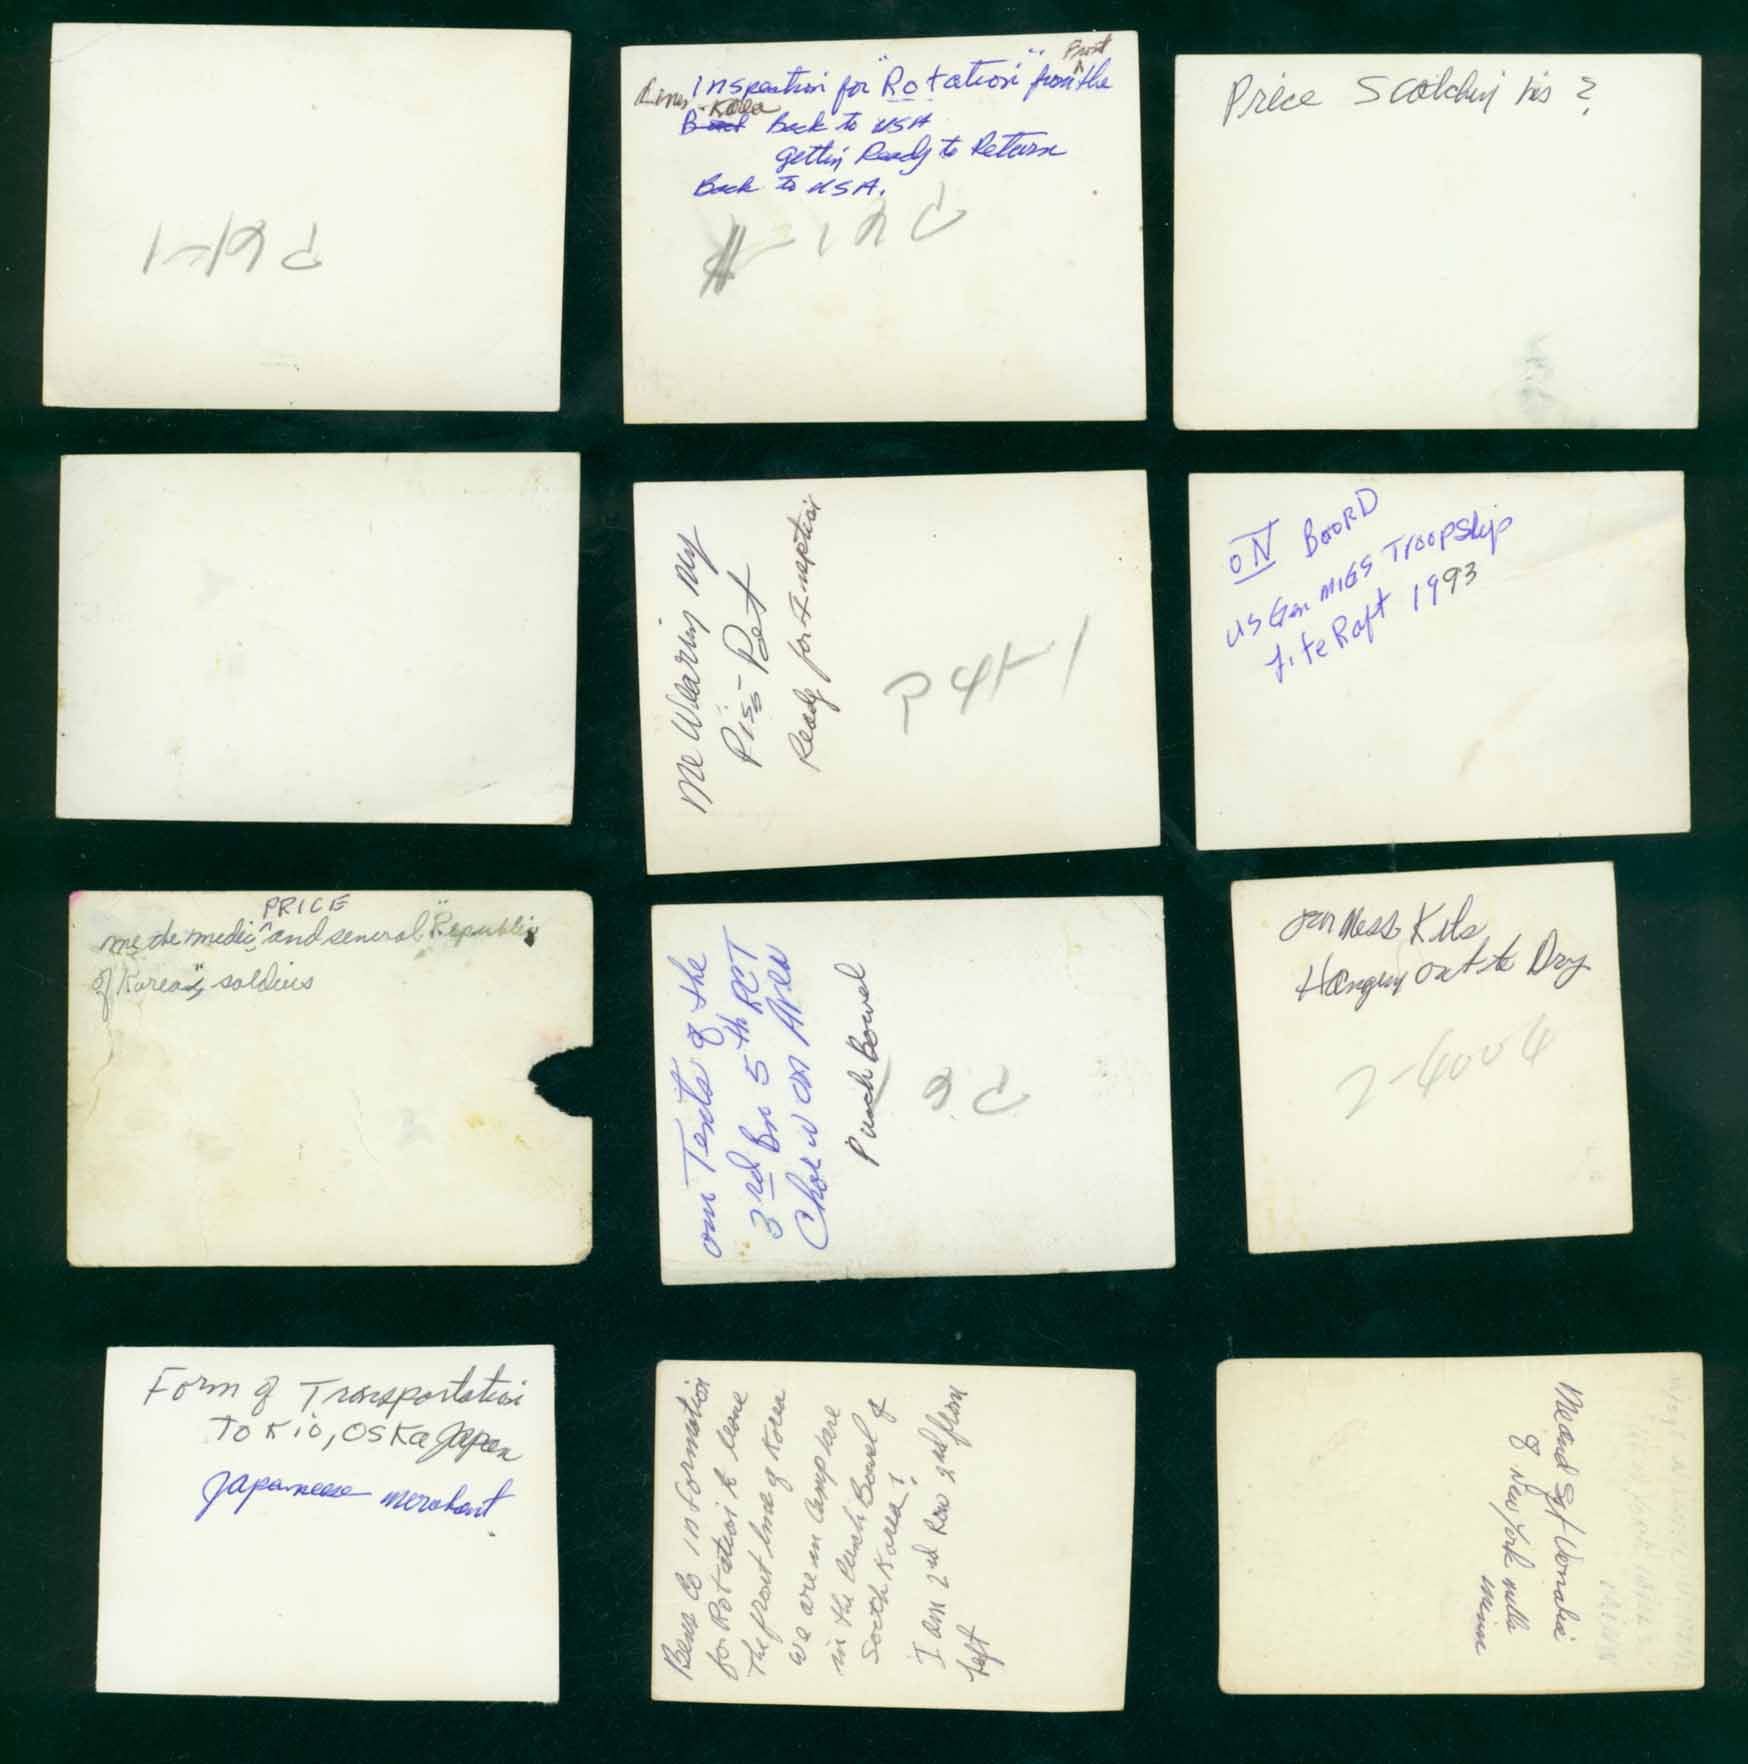 Inspection for "Rotation" from Front the
Lines - Korea
Back to USA
gettin Ready to Return
Back to USA.
Price Scotchin his ?
Me Wearing my
Piss-Pot
Ready for Inspection
P 4H-1
ON BOORD
US Gen MIGS Troopship
Life Raft 1993
PRICE
me the medic, and several "Republic
of Korea", soldiers
our Tents of the
3rd Bn 5th RCT
Chorwon Area
Punch Bowel
our Mess Kits
Hangin out to Dry
Form of Transportation
Tokio, Oska Japan
Japaneese merchant
in Formation
for Rotation to leave
the front lines of Korea
we are in Camp
in the Punch Bowel of
South Korea!
I am 2nd Row 2nd from
left
Me and Sgt
of New York